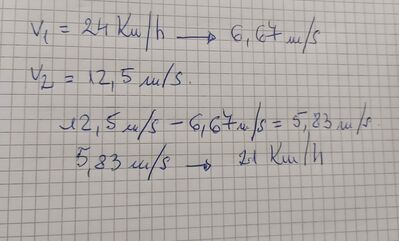 V₁ = 24 Km/h → 6,67 m/s
V₂ = 12,5 m/s.
12,5 m/s - 6,67 m/s = 5,83 m/s.
5,83 m/s → 21 Km/h